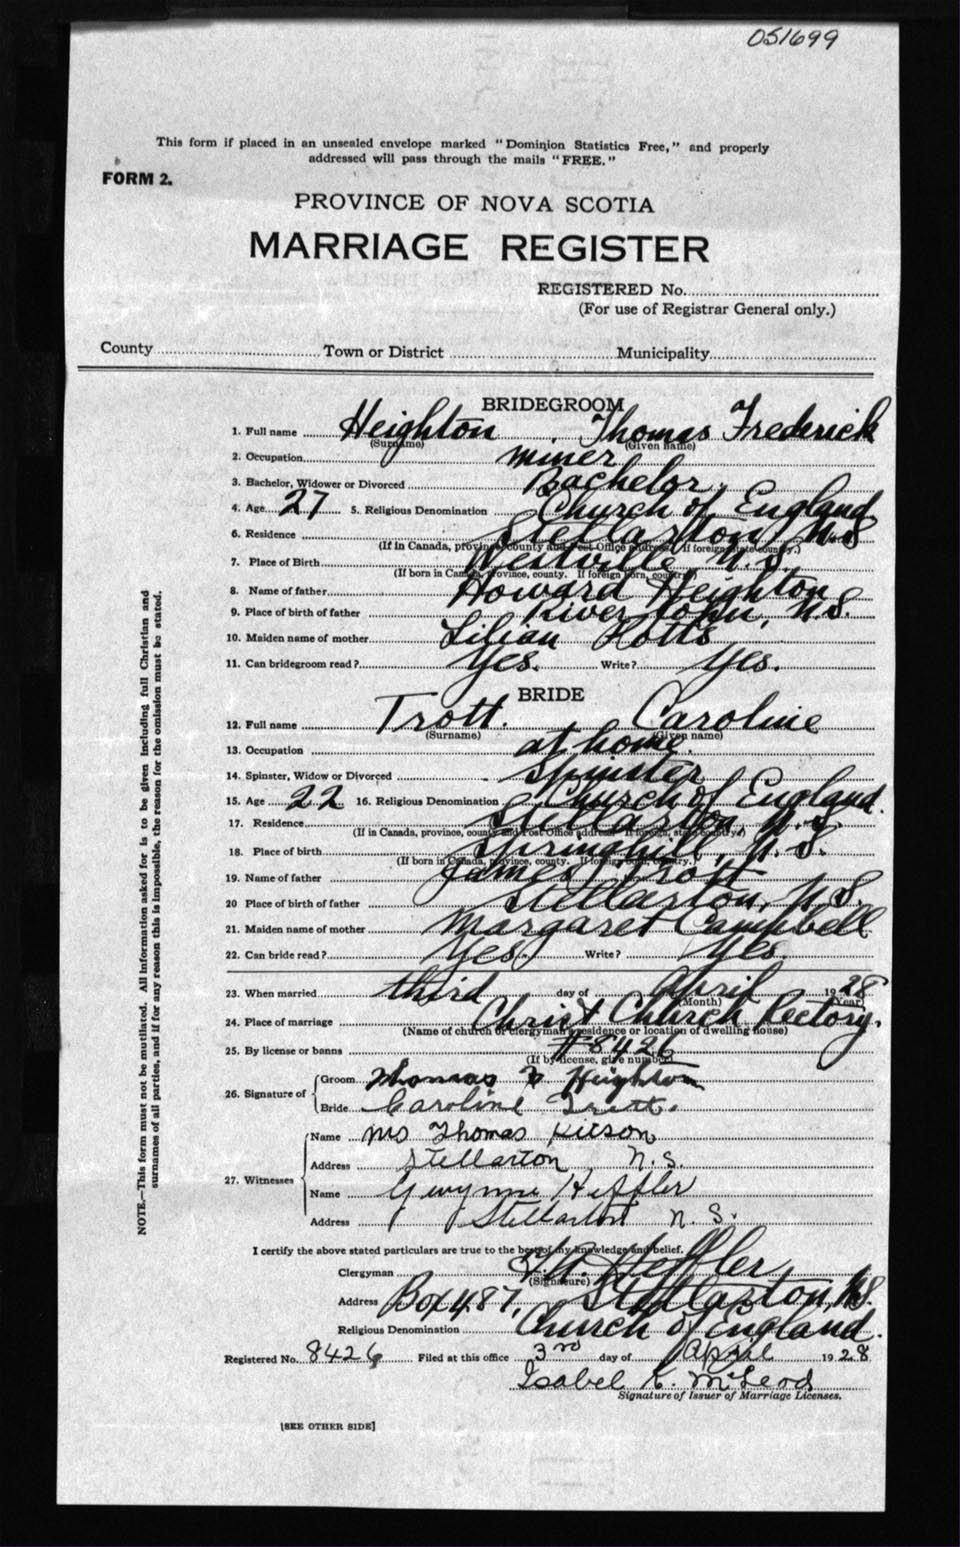 051699
This form if placed in an unsealed envelope marked "Dominion Statistics Free," and properly
addressed will pass through the mails "FREE."
FORM 2.
PROVINCE OF NOVA SCOTIA
MARRIAGE REGISTER
REGISTERED No.
(For use of Registrar General only.)
County Town or District Municipality
BRIDEGROOM
1. Full name Heighton Thomas Frederick
(Surname) (Given name)
2. Occupation miner
3. Bachelor, Widower or Divorced Bachelor
4. Age 27 5. Religious Denomination Church of England
6. Residence Stellarton N.S
(If in Canada, province, county and Post Office address. If foreign, state country.)
7. Place of Birth Westville N.S.
(If born in Canada, province, county. If foreign born, country.)
8. Name of father Howard Heighton
9. Place of birth of father River John, N.S.
10. Maiden name of mother Lilian
11. Can bridegroom read? Yes. Write? Yes.
BRIDE
12. Full name Trott. Caroline
(Surname) (Given name)
13. Occupation at home.
14. Spinster, Widow or Divorced Spinster
15. Age 22 16. Religious Denomination Church of England.
17. Residence Stellarton N.S.
(If in Canada, province, county and Post Office address. If foreign, state country.)
18. Place of birth Springhill, N.S.
(If born in Canada, province, county. If foreign born, country.)
19. Name of father James Trott
20 Place of birth of father Stellarton, N.S.
21. Maiden name of mother Margaret Campbell
22. Can bride read? Yes. Write? Yes.
23. When married third day of April 1928
(Month) (Year)
24. Place of marriage Christ Church Rectory.
(Name of church or clergyman's residence or location of dwelling house)
25. By license or banns #8426
(If by license, give number)
26. Signature of Groom Thomas F Heighton
Bride Caroline Trott.
27. Witnesses Name Mrs Thomas Kitson
Address Stellarton N.S.
Name Gwynne Heffler
Address Stellarton N.S.
I certify the above stated particulars are true to the best of my knowledge and belief.
Clergyman Heffler
(Signature)
Address Box 487, Stellarton, N.S.
Religious Denomination Church of England.
Registered No. 8426 Filed at this office 3rd day of April 1928
Isabel K. McLeod
Signature of Issuer of Marriage Licenses.
[SEE OTHER SIDE]
NOTE.—This form must not be mutilated. All information asked for is to be given including full Christian and
surnames of all parties, and if for any reason this is impossible, the reason for the omission must be stated.